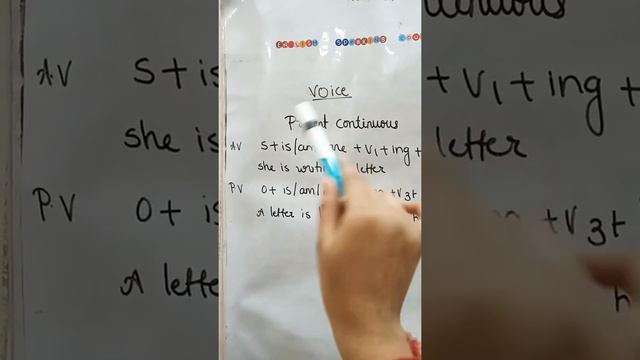 ENGLISH SPEAKING COU
VOICE
continuous
AV S+is/am/ +V1+ing+
she is letter
PV O+ is/am/ +V3+
A letter is